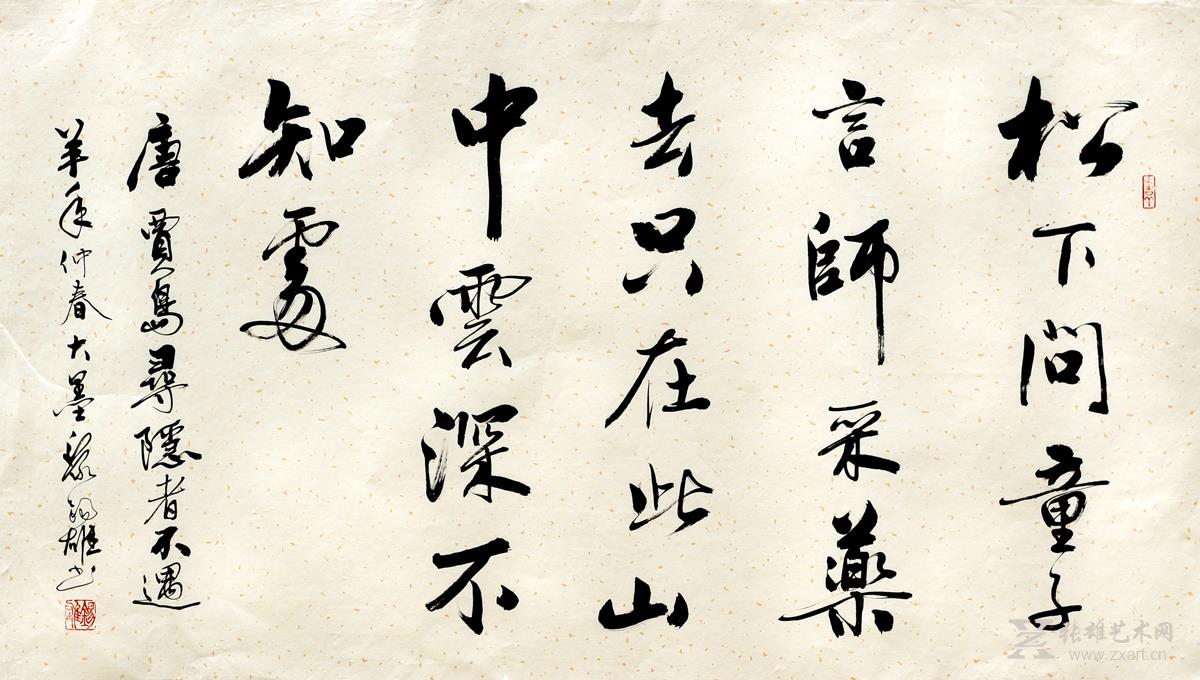 松下問童子
言師采藥
去只在此山
中雲深不
知處
唐賈島尋隱者不遇
羊年仲春大墨黎錫雄书
张雄艺术网
www.zxart.cn